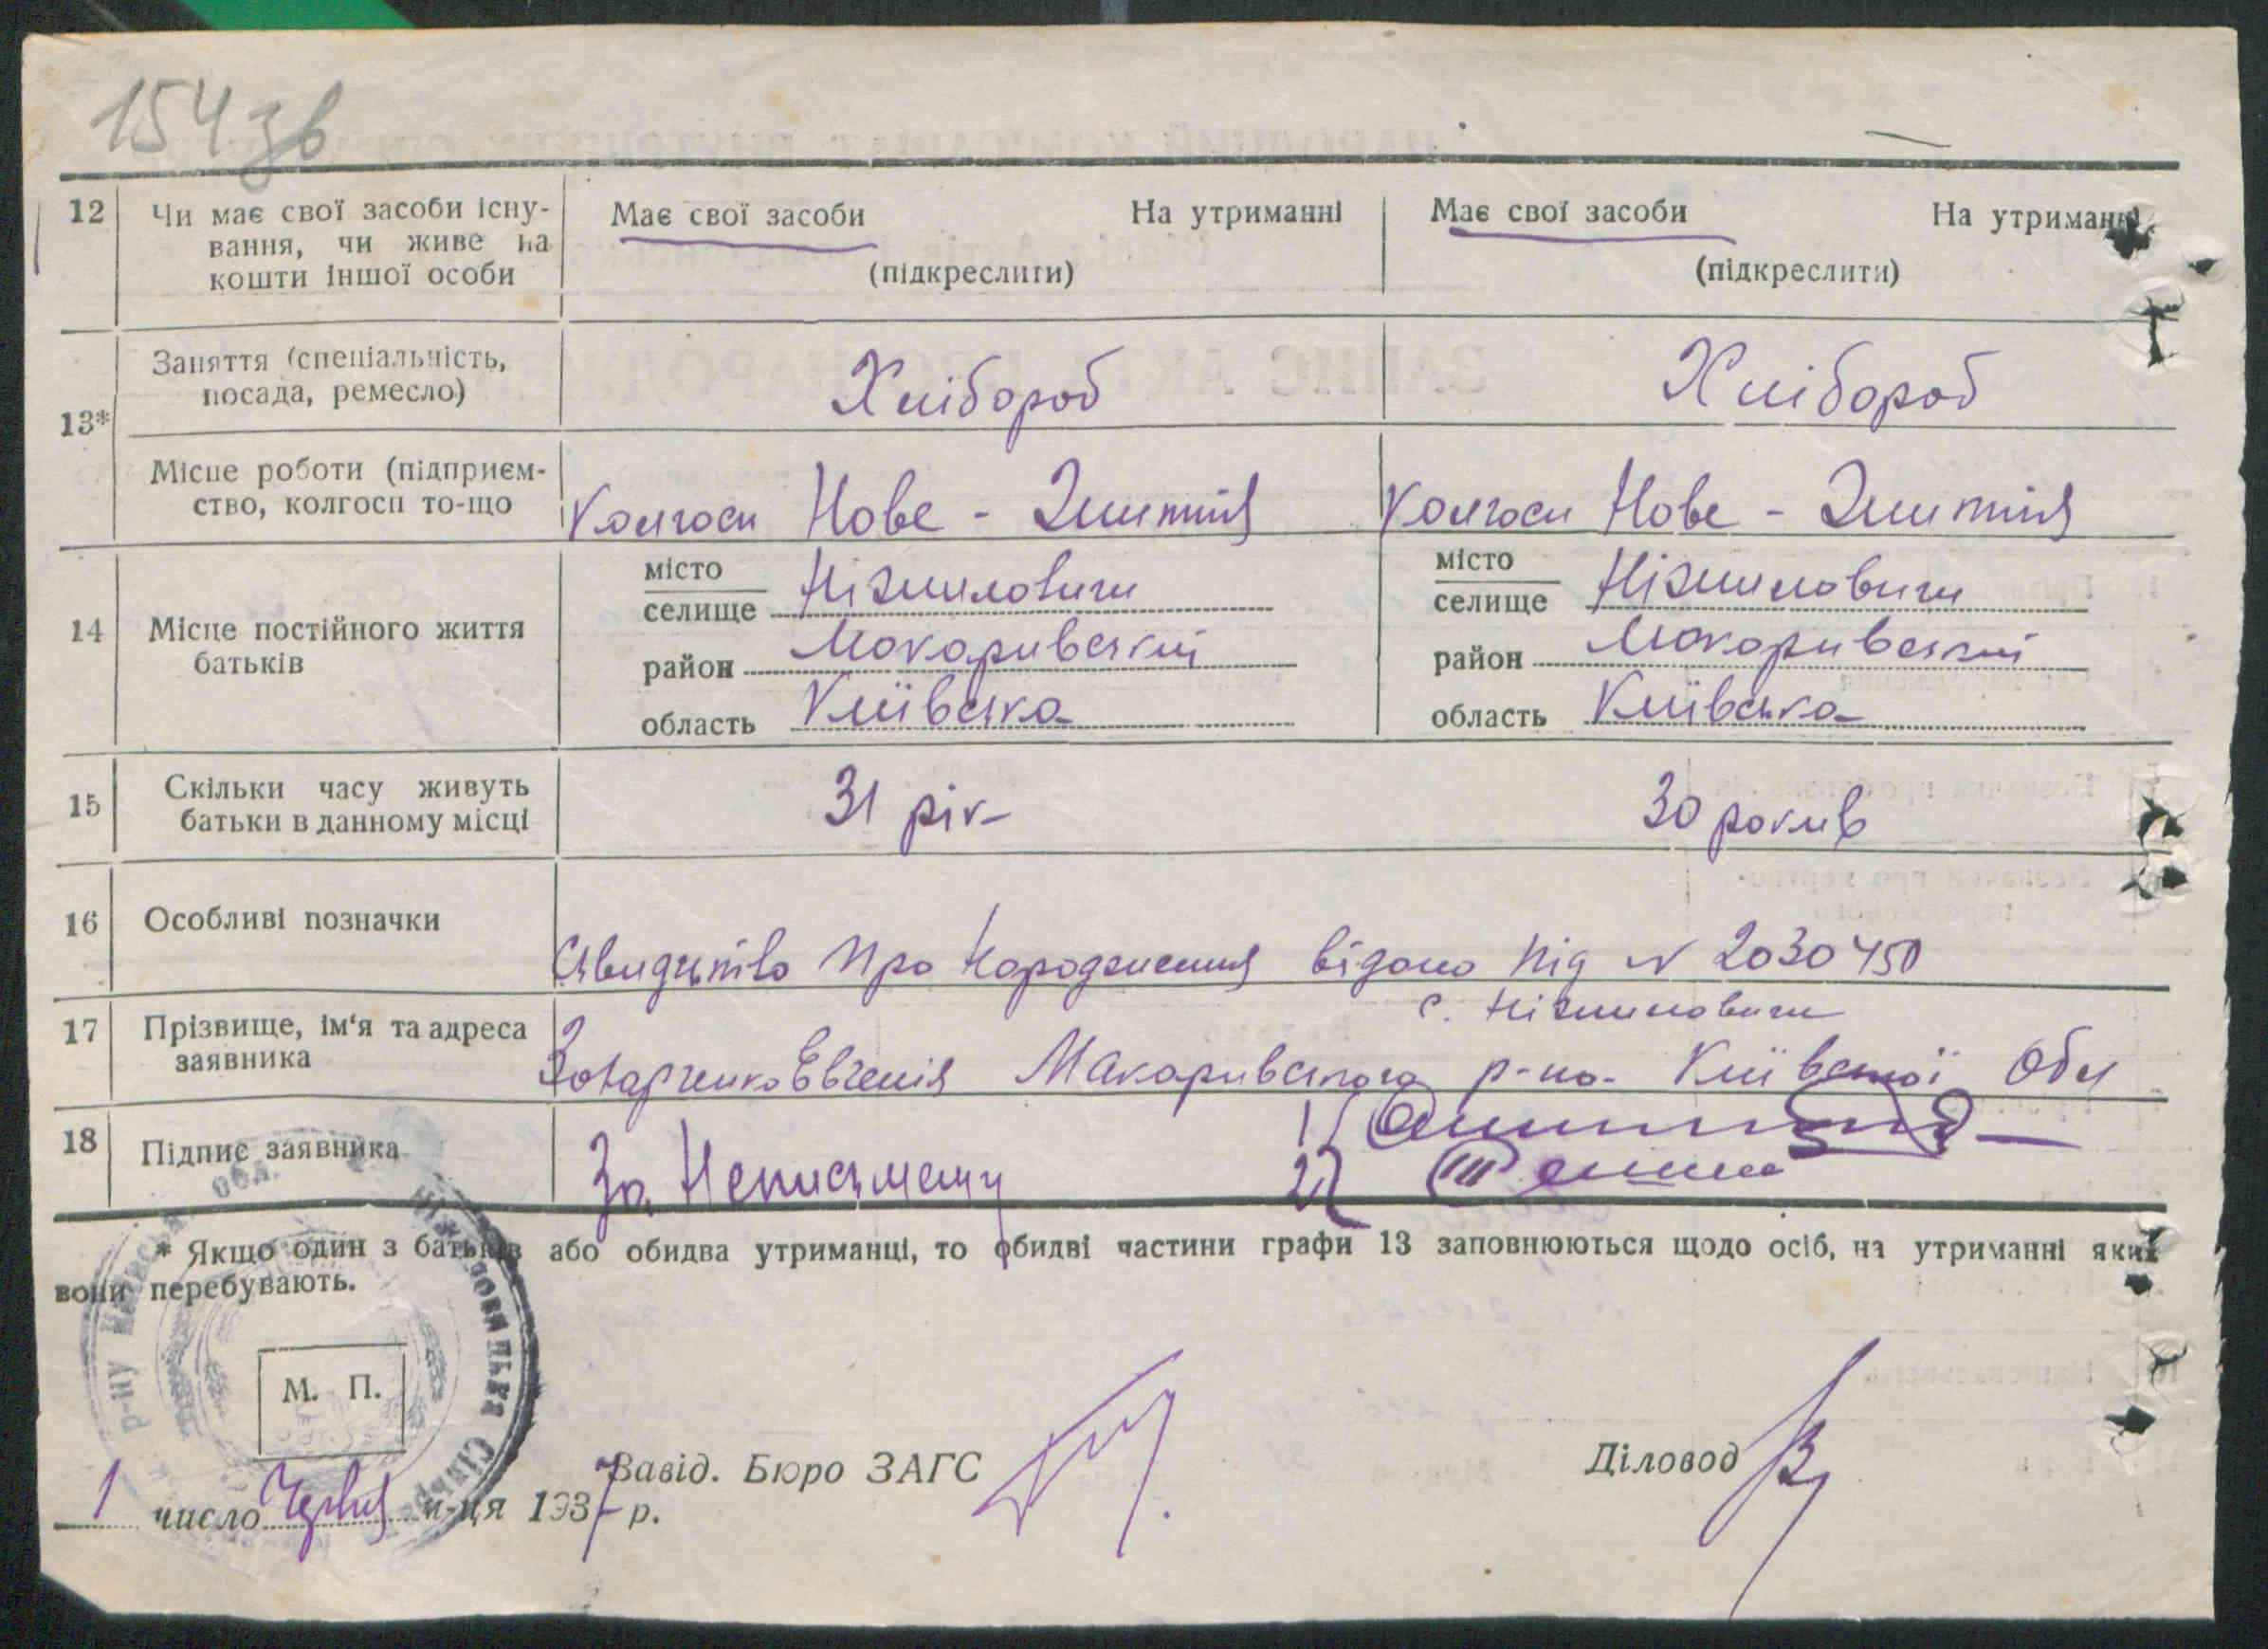 154зв
12 Чи має свої засоби існу-
вання, чи живе на
кошти іншої особи
Має свої засоби На утриманні
(підкреслити)
Має свої засоби На утриманні
(підкреслити)
13*
Заняття (спеціальність,
посада, ремесло)
Хлібороб Хлібороб
Місце роботи (підприєм-
ство, колгосп то-що
Колгосп Нове-Життя Колгосп Нове-Життя
14 Місце постійного життя
батьків
місто
селище Ніжиловичи
район Макаривский
область Київська
місто
селище Ніжиловичи
район Макаривский
область Київська
15 Скільки часу живуть
батьки в данному місці
31 рік 30 рокив
16 Особливі позначки
Свидцтво про народження відано під N 2030450
17 Прізвище, ім'я та адреса
заявника
с. Ніжиловичи
Евгенія Макаривского р-на Київської Обл
18 Підпис заявника
За Неписьмену
1)
2)
* Якщо один з батьків або обидва утриманці, то обидві частини графи 13 заповнюються щодо осіб, на утриманні яких
вони перебувають.
М. П.
Завід. Бюро ЗАГС
Діловод
1 число Червня м-ця 1937 р.